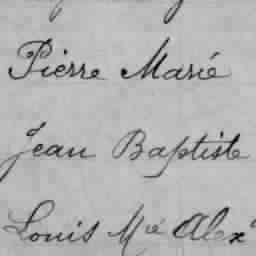 Pierre Marie
Jean Baptiste
Louis Mie Alexr